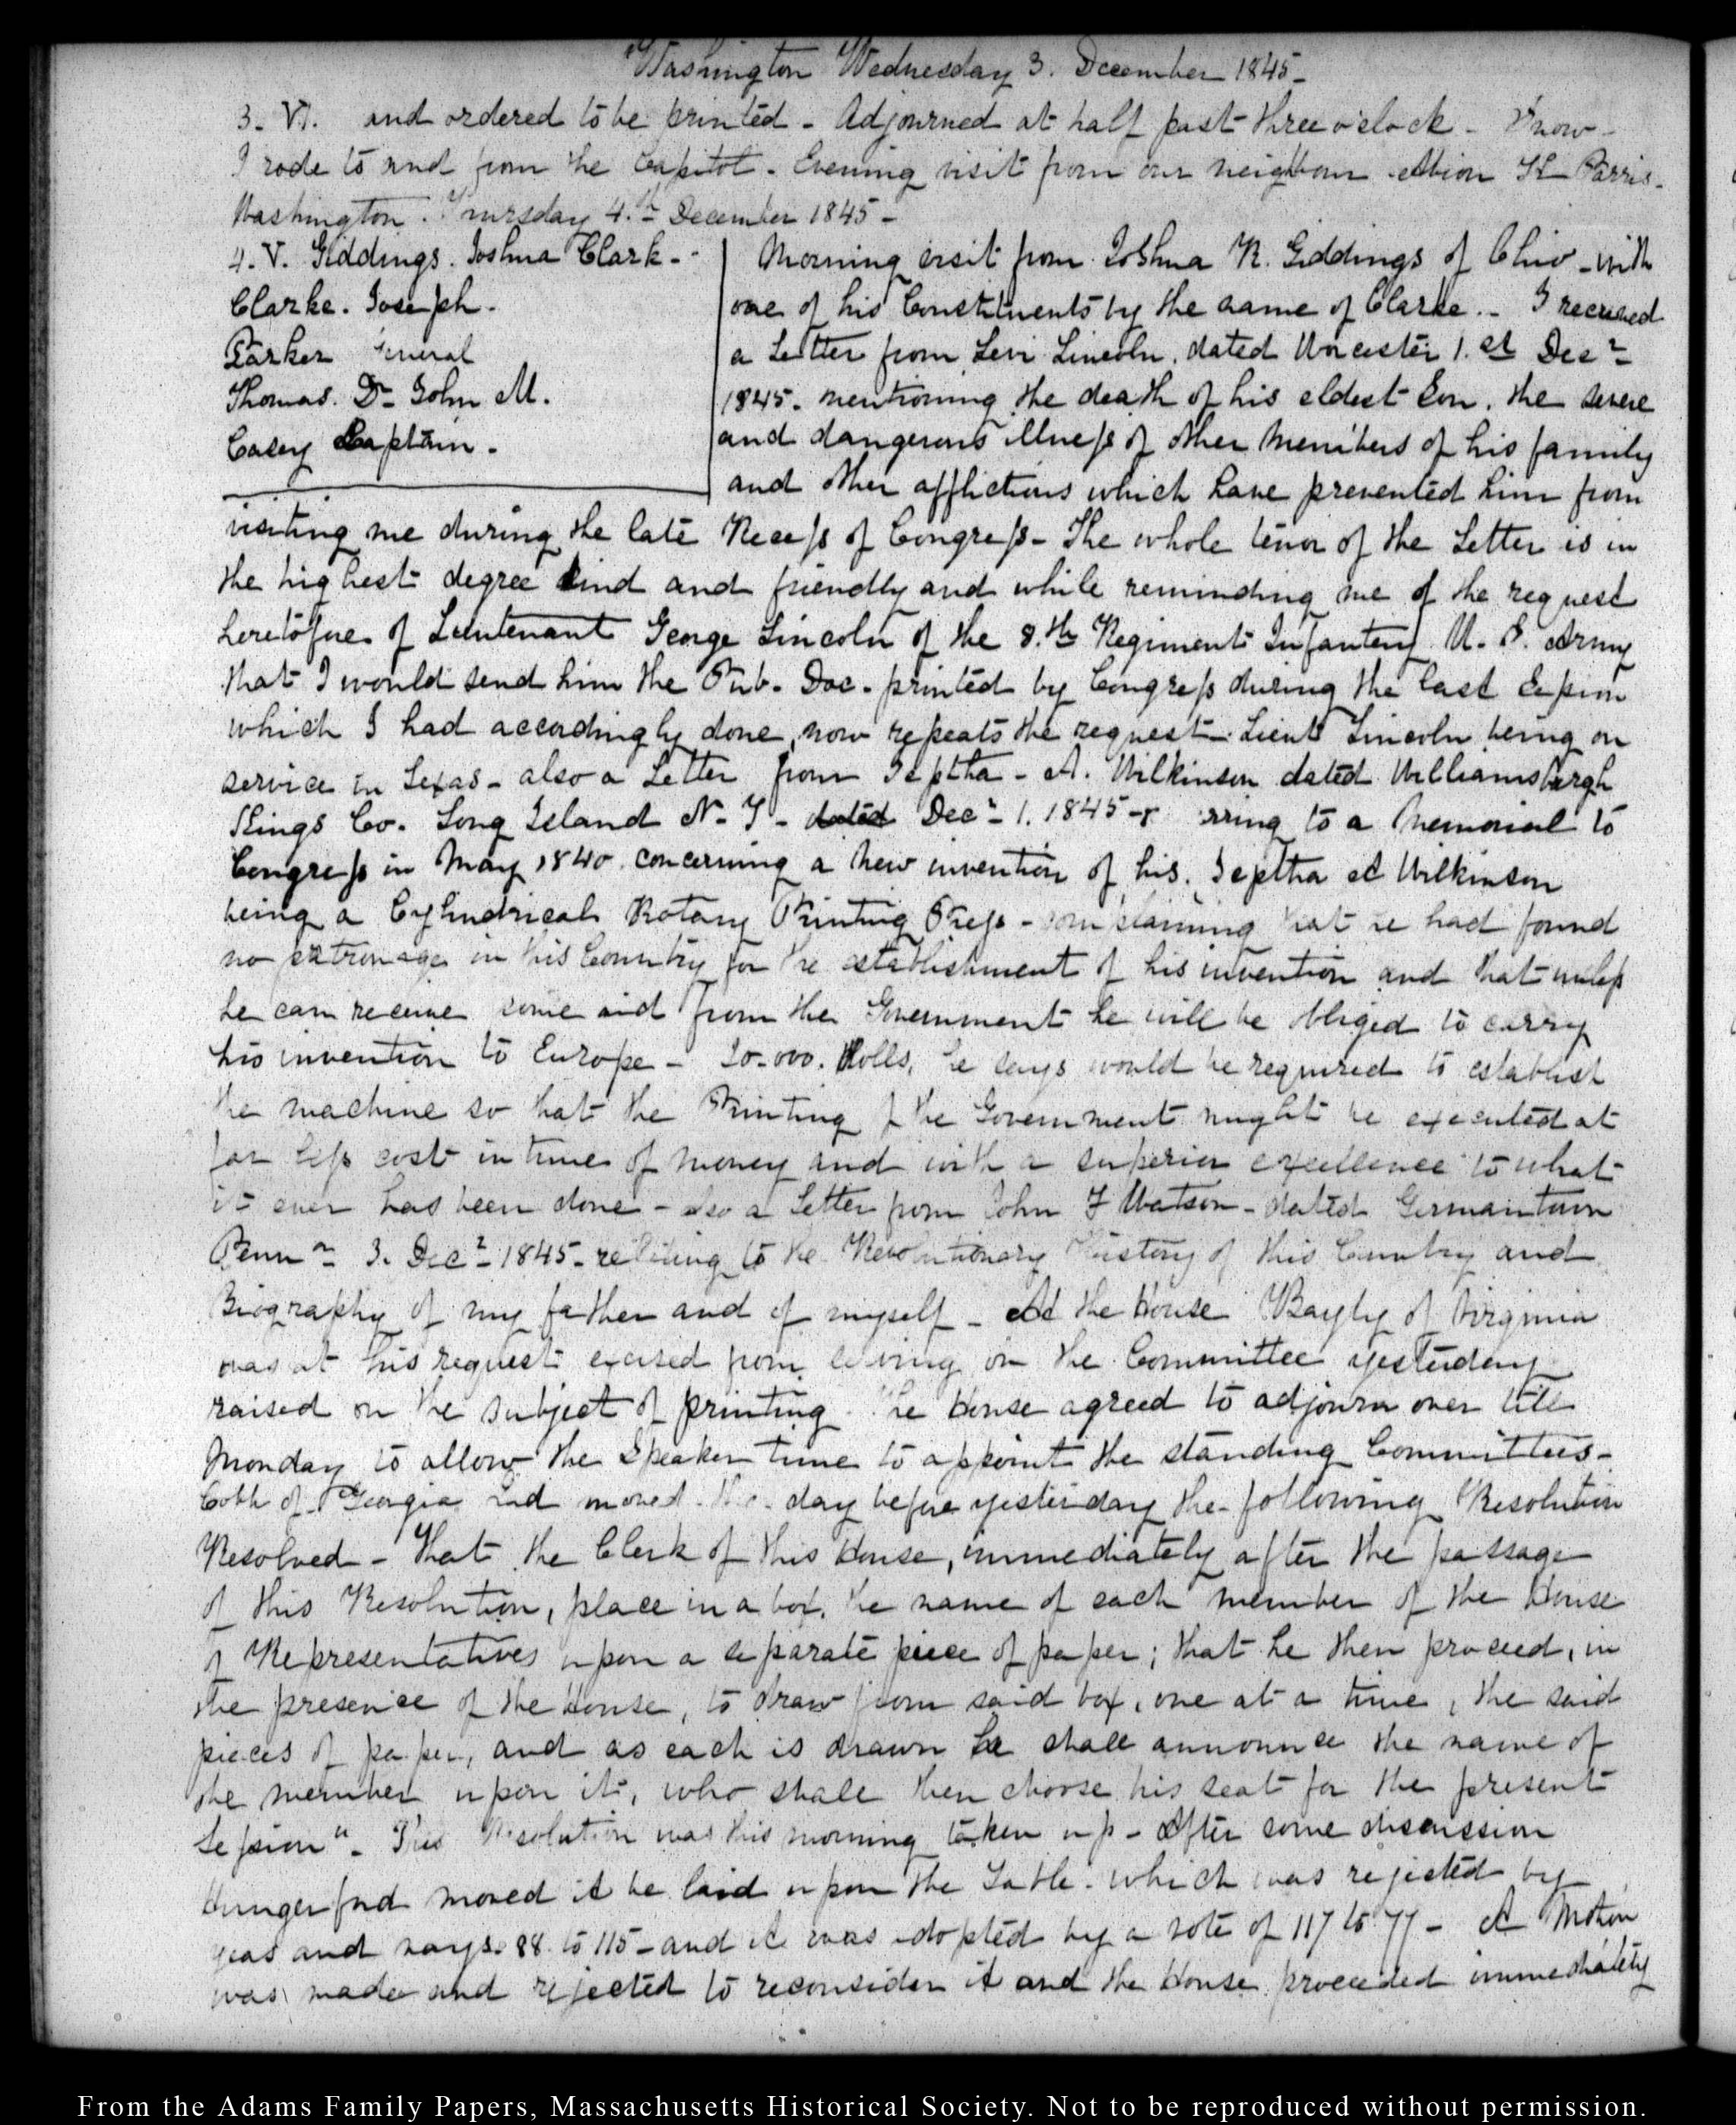 Washington Wednesday 3. December 1845-
3. VI. and ordered to be printed - Adjourned at half past three o'clock - Snow -
I rode to and from the Capitol - Evening visit from our neighbour Albion K Parris -
Washington. Thursday 4.th December 1845 -
4. V. Giddings. Joshua Clark -
Clarke. Joseph.
Parker General
Thomas. Dr John M.
Casey Captain.
Morning visit from Joshua R. Giddings of Ohio - with
one of his Constituents by the name of Clarke.. I received
a Letter from Levi Lincoln, dated Worcester 1.st Decr
1845. mentioning the death of his eldest Son. the severe
and dangerous illness of other Members of his family
and other afflictions which have prevented him from
visiting me during the late Recess of Congress - The whole tenor of the Letter is in
the highest degree kind and friendly and while reminding me of the request
heretofore of Lieutenant George Lincoln of the 8.th Regiment Infantery U. S. Army
that I would send him the Pub. Doc. printed by Congress during the last Session
which I had accordingly done, now repeats the request - Lieut Lincoln being on
service in Texas - also a Letter from Jeptha - A. Wilkinson dated Williamsburgh
Kings Co. Long Island N-Y - dated Decr 1. 1845 - r rring to a Memorial to
Congress in May 1840 concerning a new invention of his. Jeptha A Wilkinson
being a Cylindrical Rotary Printing Press - complaining that he had found
no patronage in this Country for the establishment of his invention and that unless
he can receive some aid from the Government he will be obliged to carry
his invention to Europe - 20-000. Dolls. he says would be required to establish
the machine so that the Printing of the Government might be executed at
far less cost in time of money and with a superior excellence to what
it ever has been done - also a Letter from John F Watson - dated Germantown
Penna 3. Decr 1845 - relating to the Revolutionary History of this Country and
Biography of my father and of myself - At the House Bayly of Virginia
was at his request excused from serving on the Committee yesterday
raised on the subject of printing. The House agreed to adjourn over till
Monday to allow the Speaker time to appoint the standing Committees -
Cobb of Georgia had moved the day before yesterday the following Resolution
Resolved - That the Clerk of this House, immediately after the passage
of this Resolution, place in a box, the name of each member of the House
of Representatives upon a separate piece of paper; that he then proceed, in
the presence of the House, to draw from said box, one at a time, the said
pieces of paper, and as each is drawn he shall announce the name of
the member upon it, who shall then choose his seat for the present
Session". This Resolution was this morning taken up - After some discussion
Hungerford moved it be laid upon the Table. which was rejected by
yeas and nays. 88 to 115 - and it was adopted by a vote of 117 to 77 - A Motion
was made and rejected to reconsider it and the House proceeded immediately
From the Adams Family Papers, Massachusetts Historical Society. Not to be reproduced without permission.